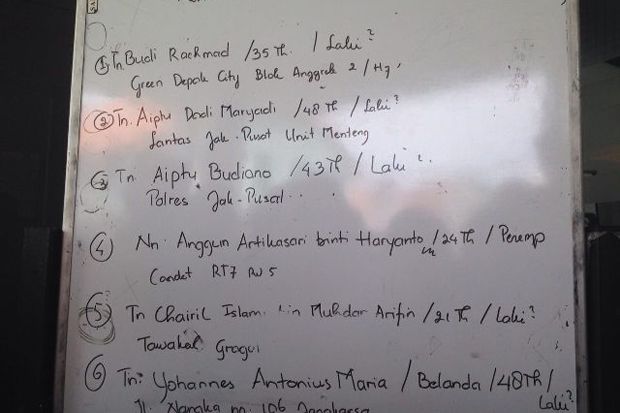 ① Tn. Budi Rachmad /35 Th. / Laki²
Green Depok City Blok Anggrek 2 / H9
② Tn. Aiptu Dodi Maryadi /48 Th / Laki²
Lantas Jak-Pusat Unit Menteng
③ Tn Aiptu Budiono /43 Th / Laki²
Polres Jak-Pusat
④ Nn. Anggun Artikasari binti Haryanto /24 Th / Peremp
Condet RT7 RW 5
⑤ Tn Chairil Islam bin Muhdar Arifin /21 Th / Laki²
Tawakal Grogol
⑥ Tn. Yohannes Antonius Maria / Belanda /48Th/
Laki²
Jl. Nangka no. 106